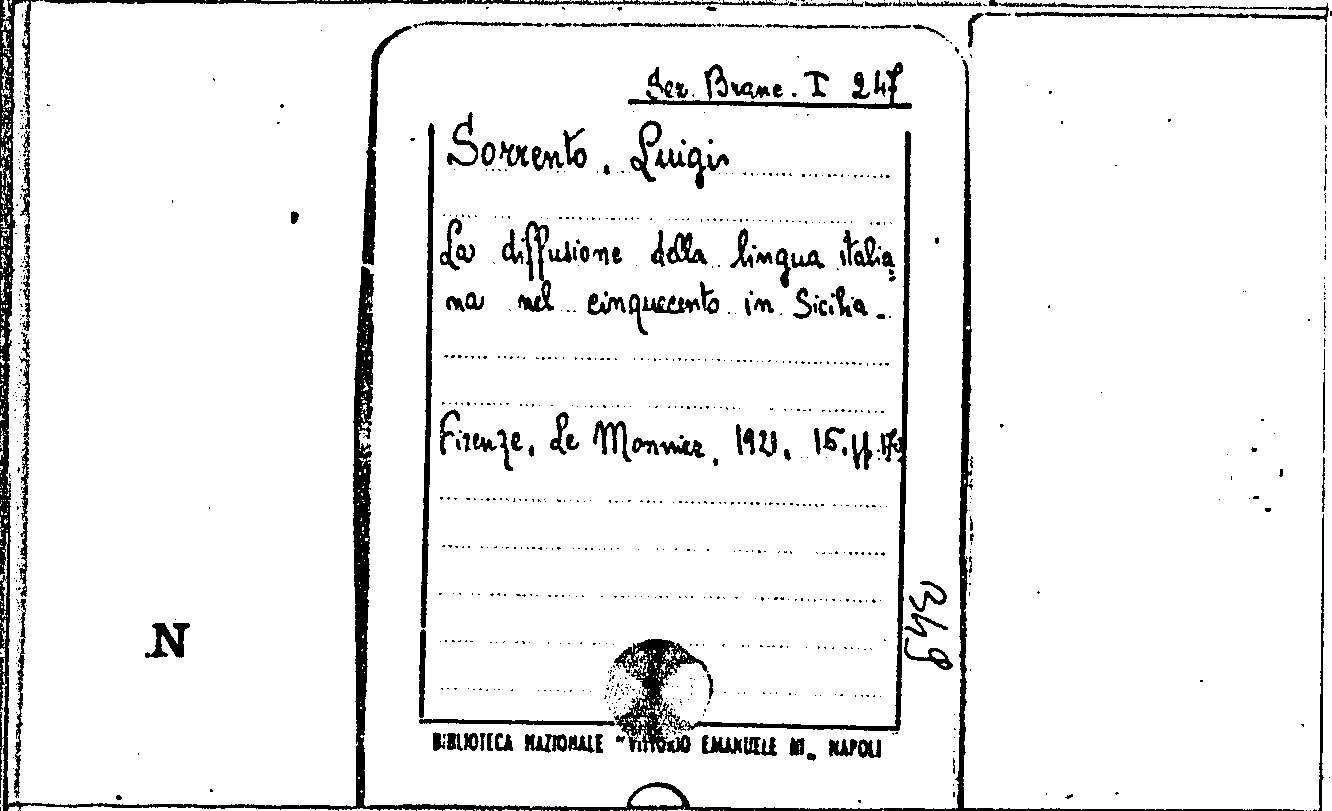 Ser. Branc. I 247
Sorrento, Luigi
La diffusione della lingua italia=
na nel cinquecento in Sicilia.
Firenze, Le Monnier, 1921. 15. pp.
349
N
BIBLIOTECA NAZIONALE "VITTORIO EMANUELE III„ NAPOLI